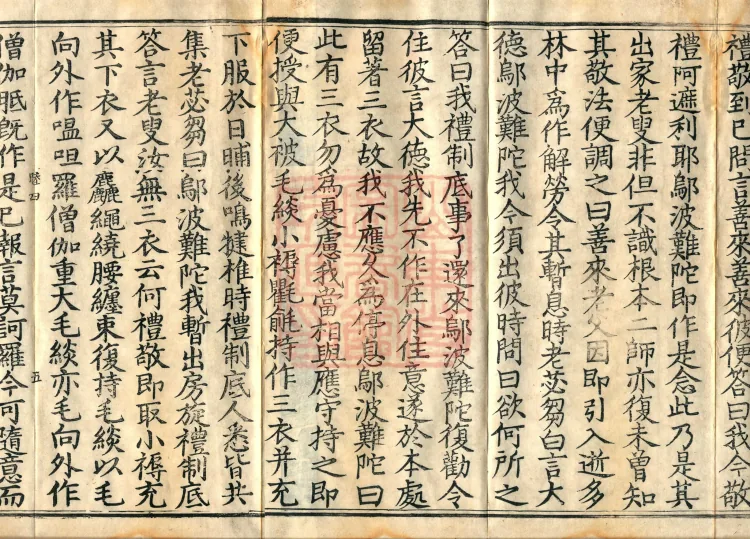 禮敬到已問言善來善來彼便答曰我今敬
禮阿遮利耶鄔波難陀即作是念此乃是其
出家老叟非但不識根本二師亦復未曾知
其敬法便調之曰善來老父因即引入逝多
林中為作解勞令其暫息時老苾芻白言大
德鄔波難陀我今須出彼時問曰欲何所之
答曰我禮制底事了還來鄔波難陀復勸令
住彼言大德我先不作在外住意遂於本處
留著三衣故我不應久為停息鄔波難陀曰
此有三衣勿為憂慮我當相與應守持之即
便授與大被毛緂小褥氍毹持作三衣并充
下服於日晡後鳴揵椎時禮制底人悉皆共
集老苾芻曰鄔波難陀我暫出房旋禮制底
答言老叟汝無三衣云何禮敬即取小褥充
其下衣又以麤繩繞腰纏束復持毛緂以毛
向外作嗢呾羅僧伽重大毛緂亦毛向外作
五
僧伽胝既作是已報言莫訶羅今可隨意而